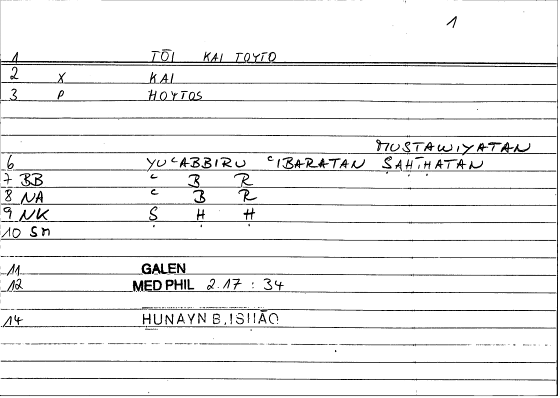 1
1 TŌI KAI TOYTO
2 X KAI
3 P HOYTOS
MUSTAWIYATAN
6 YUᶜABBIRU ᶜIBARATAN ṢAḤĪḤATAN
7 BB ᶜ B R
8 NA ᶜ B R
9 NK Ṣ Ḥ Ḥ
10 SM
11 GALEN
12 MED PHIL 2.17 : 34
14 HUNAYN B. ISḤĀQ